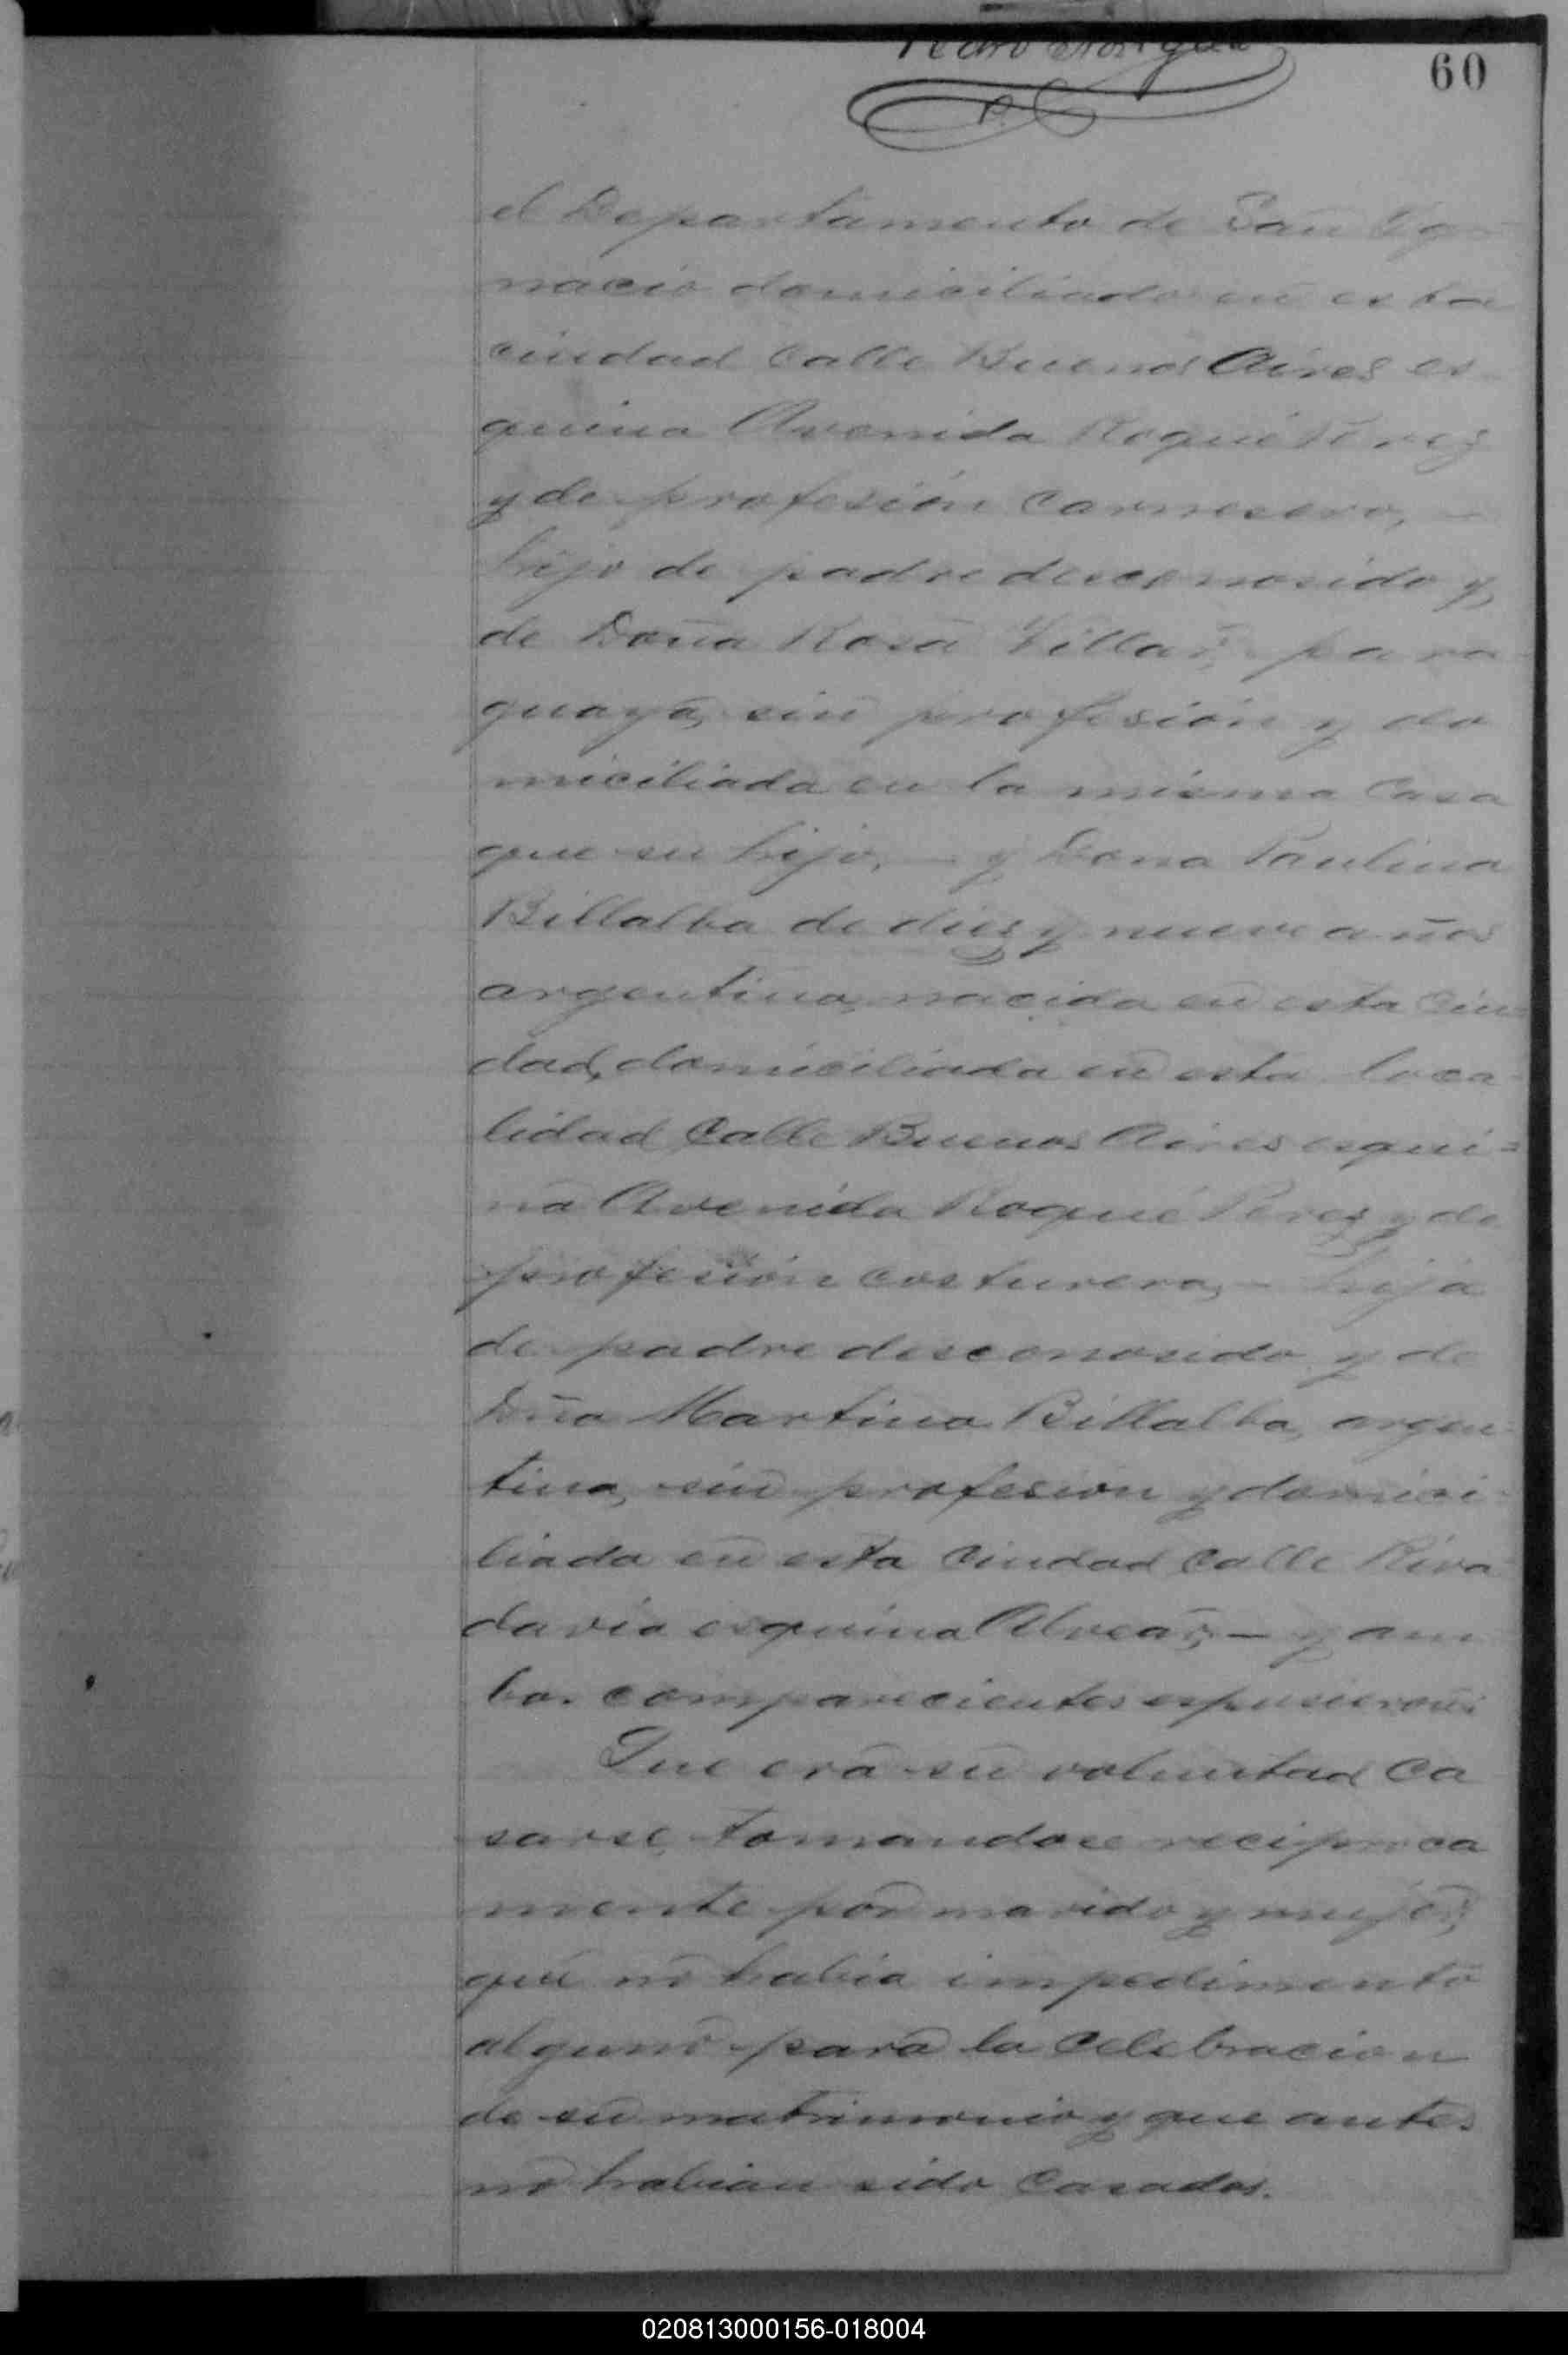 60
el Departamento de San Yg-
nacio domiciliado en esta
ciudad calle Buenos Aires es-
quina Avenida Roque Perez
y de profesión carnesero, —
hijo de padre desconosido y
de Doña Rosa Villar, para-
guaya, sin profesión y do
miciliada en la misma casa
que su hijo, — y Dona Paulina
Billalba de diez y nueve años
argentina, nacida en esta ciu-
dad, domiciliada en esta loca-
lidad calle Buenos Aires esqui=
na Avenida Roque Perez y de
profesión costurera, — hija
de padre desconosido y de
Dña Martina Billalba, argen-
tina, sin profesion y domici-
liada en esta ciudad calle Riva
davia esquina Alvear, — y am
bos comparecientes espusieron:
Que era su voluntad ca
sarse, tomandose reciproca
mente por marido y mujer,
que no habia impedimento
alguno para la celebracion
de su matrimonio y que antes
no habian sido casados.
020813000156-018004